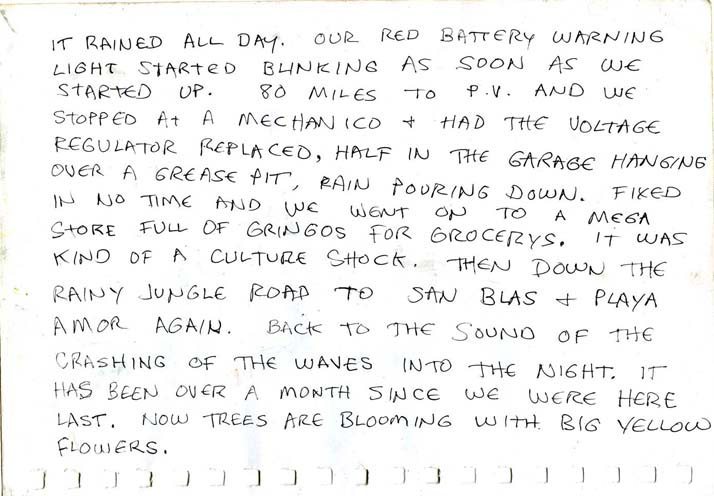 IT RAINED ALL DAY. OUR RED BATTERY WARNING
LIGHT STARTED BLINKING AS SOON AS WE
STARTED UP. 80 MILES TO P.V. AND WE
STOPPED At A MECHANICO + HAD THE VOLTAGE
REGULATOR REPLACED, HALF IN THE GARAGE HANGING
OVER A GREASE PIT, RAIN POURING DOWN. FIXED
IN NO TIME AND WE WENT ON TO A MEGA
STORE FULL OF GRINGOS FOR GROCERYS. IT WAS
KIND OF A CULTURE SHOCK. THEN DOWN THE
RAINY JUNGLE ROAD TO SAN BLAS + PLAYA
AMOR AGAIN. BACK TO THE SOUND OF THE
CRASHING OF THE WAVES INTO THE NIGHT. IT
HAS BEEN OVER A MONTH SINCE WE WERE HERE
LAST. NOW TREES ARE BLOOMING WITH BIG YELLOW
FLOWERS.